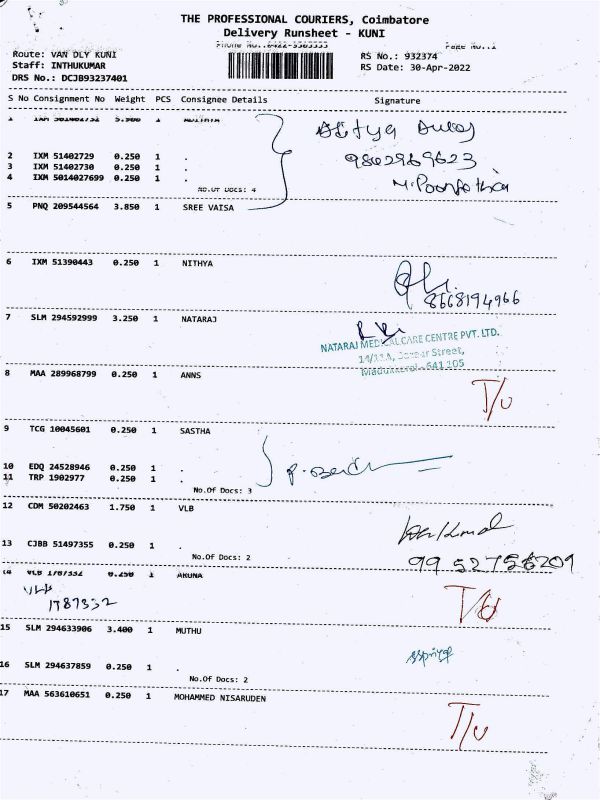 THE PROFESSIONAL COURIERS, Coimbatore
Delivery Runsheet - KUNI
Phone No.:0422-
Page No.:1
Route: VAN DLY KUNI
Staff: INTHUKUMAR
DRS No.: DCJB93237401
RS No.: 932374
RS Date: 30-Apr-2022
S No Consignment No Weight PCS Consignee Details Signature
1 IXM 5.900 1 ADITHYA
Aditya
9802969623
2 IXM 51402729 0.250 1 .
3 IXM 51402730 0.250 1 .
4 IXM 5014027699 0.250 1 .
No.Of Docs: 4
5 PNQ 209544564 3.850 1 SREE VAISA
6 IXM 51390443 0.250 1 NITHYA
8668194966
7 SLM 294592999 3.250 1 NATARAJ
NATARAJ MEDICAL CARE CENTRE PVT. LTD.
Street,
641 105
8 MAA 289968799 0.250 1 ANNS
T/U
9 TCG 10045601 0.250 1 SASTHA
10 EDQ 24528946 0.250 1 .
11 TRP 1902977 0.250 1 .
No.Of Docs: 3
12 CDM 50202463 1.750 1 VLB
13 CJBB 51497355 0.250 1 .
No.Of Docs: 2
99 52756209
14 VLB 1787332 0.250 1 ARUNA
VLB
1787332
15 SLM 294633906 3.400 1 MUTHU
16 SLM 294637859 0.250 1 .
No.Of Docs: 2
17 MAA 563610651 0.250 1 MOHAMMED NISARUDEN
T/U